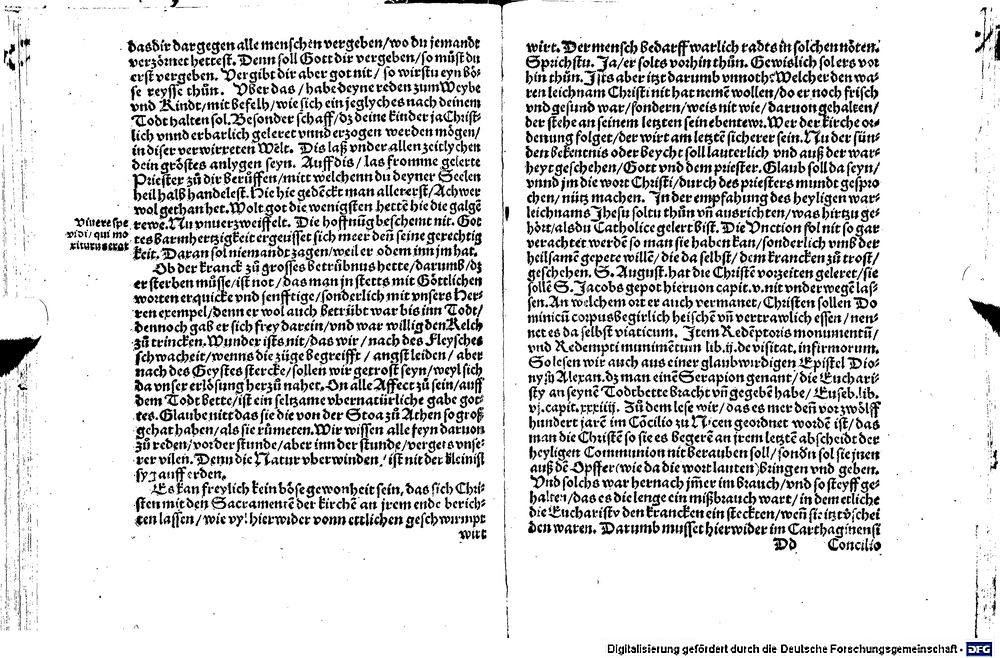 das dir dargegen alle menschen vergeben/wo du jemandt
verzörnet hettest. Denn soll Gott dir vergeben/so můst du
erst vergeben. Vergibt dir aber got nit/so wirstu eyn bö-
se reysse thůn. Vber das/habe deyne reden zum Weybe
vnd Kindt/mit befelh/wie sich ein jeglyches nach deinem
Todt halten sol. Besonder schaff/dz deine kinder ja Christ-
lich vnnd erbarlich geleret vnnd erzogen werden mögen/
in diser verwirreten Welt. Dis laß vnder allen zeitlychen
dein gröstes anlygen seyn. Auff dis/las fromme gelerte
Priester zů dir berůffen/mitt welchenn du deyner Seelen
heil halb handelest. Hie hie gedēckt man allererst/Ach wer
wol gethan het. Wolt got die wenigsten hettē hie die galgē
rewe. Nu vnuerzweiffelt. Die hoffnūg beschemt nit. Got
tes barmhertzigkeit ergeusset sich meer deñ seine gerechtig
keit. Daran sol niemandt zagen/weil er odem inn jm hat.
Viuere spe
vidi/qui mo
riturus erat
Ob der kranck zů grosses betrůbnus hette/darumb/dz
er sterben můsse/ist not/das man jn stetts mit Göttlichen
worten erquicke vnd senfftige/sonderlich mit vnsers Her-
ren exempel/denn er wol auch betrůbt war bis inn Todt/
dennoch gab er sich frey darein/vnd war willig den Kelch
zů trincken. Wunder ists nit/das wir/nach des Fleysches
schwacheit/wenns die zůge begreifft/angst leiden/aber
nach des Geystes stercke/sollen wir getrost seyn/weyl sich
da vnser erlösung herzů nahet. On alle Affect zů sein/auff
dem Todt bette/ist ein seltzame vbernatürliche gabe got-
tes. Glaube nitt das sie die von der Stoa zů Athen so groß
gehat haben/als sie růmeten. Wir wissen alle feyn daruon
zů reden/vor der stunde/aber inn der stunde/vergets vnse-
rer vilen. Denn die Natur vberwinden/ist nit der kleinist
syg auff erden.
Es kan freylich kein böse gewonheit sein, das sich Chri-
sten mit den Sacramentē der kirchē an jrem ende berich-
ten lassen/wie vyl hierwider vonn ettlichen geschwirmpt
wirt
wirt. Der mensch bedarff warlich radts in solchen nöten.
Sprichstu. Ja/er solts vorhin thůn. Gewislich sol ers vor
hin thůn. Ists aber itzt darumb vnnoth: Welcher den wa-
ren leichnam Christi nit hat nemē wollen/do er noch frisch
vnd gesund war/sondern/weis nit wie/daruon gehalten/
der stehe an seinem letzten sein ebentewr. Wer der kirche or-
denung folget/der wirt am letztē sicherer sein. Nu der sün-
den bekentnis oder beycht soll lauterlich vnd auß der war-
heyt geschehen/Gott vnd dem priester. Glaub soll da seyn/
vnnd jm die wort Christi/durch des priesters mundt gespro
chen/nütz machen. In der empfahung des heyligen war-
leichnams Jhesu soltu thůn vñ ausrichten/was hirtzu ge-
hört/als du Catholice gelert bist. Die Vnction sol nit so gar
verachtet werdē so man sie haben kan/sonderlich vmb der
heilsamē gepete willē/die da selbst/dem krancken zů trost/
geschehen. S. August. hat die Christē vorzeiten geleret/sie
sollē S. Jacobs gepot hieruon capit. v. nit vnderwegē las-
sen. An welchem ort er auch vermanet/Christen sollen Do
minicū corpus begirlich heischen vñ vertrawlich essen/nen-
net es da selbst viaticum. Item Redēptoris monumentū/
vnd Redempti munimētum lib.ij.de visitat. infirmorum.
So lesen wir auch aus einer glaubwirdigen Epistel Dio-
nysij Alexan. dz man einē Serapion genant/die Euchari-
sty an seynē Todtbette bracht vñ gegebē habe/Euseb. lib.
vj. capit. xxxiiij. Zů dem lese wir/das es mer deñ vor zwölff
hundert jarē im Cōcilio zu Nicen geordnet wordē ist/das
man die Christē so sie es begerē an jrem letztē abscheidt der
heyligen Communion nit berauben soll/sondn̄ sol sie jnen
auß dē Opffer (wie da die wort lauten) bringen vnd geben.
Vnd solchs war hernach jm̄er im brauch/vnd so steyff ge-
halten/das es die lenge ein mißbrauch wart/in dem etliche
die Eucharisty den krancken ein steckten/weñ sie itzt vschei
den waren. Darumb musset hierwider im Carthaginensi
Dd Concilio
Digitalisierung gefördert durch die Deutsche Forschungsgemeinschaft - DFG